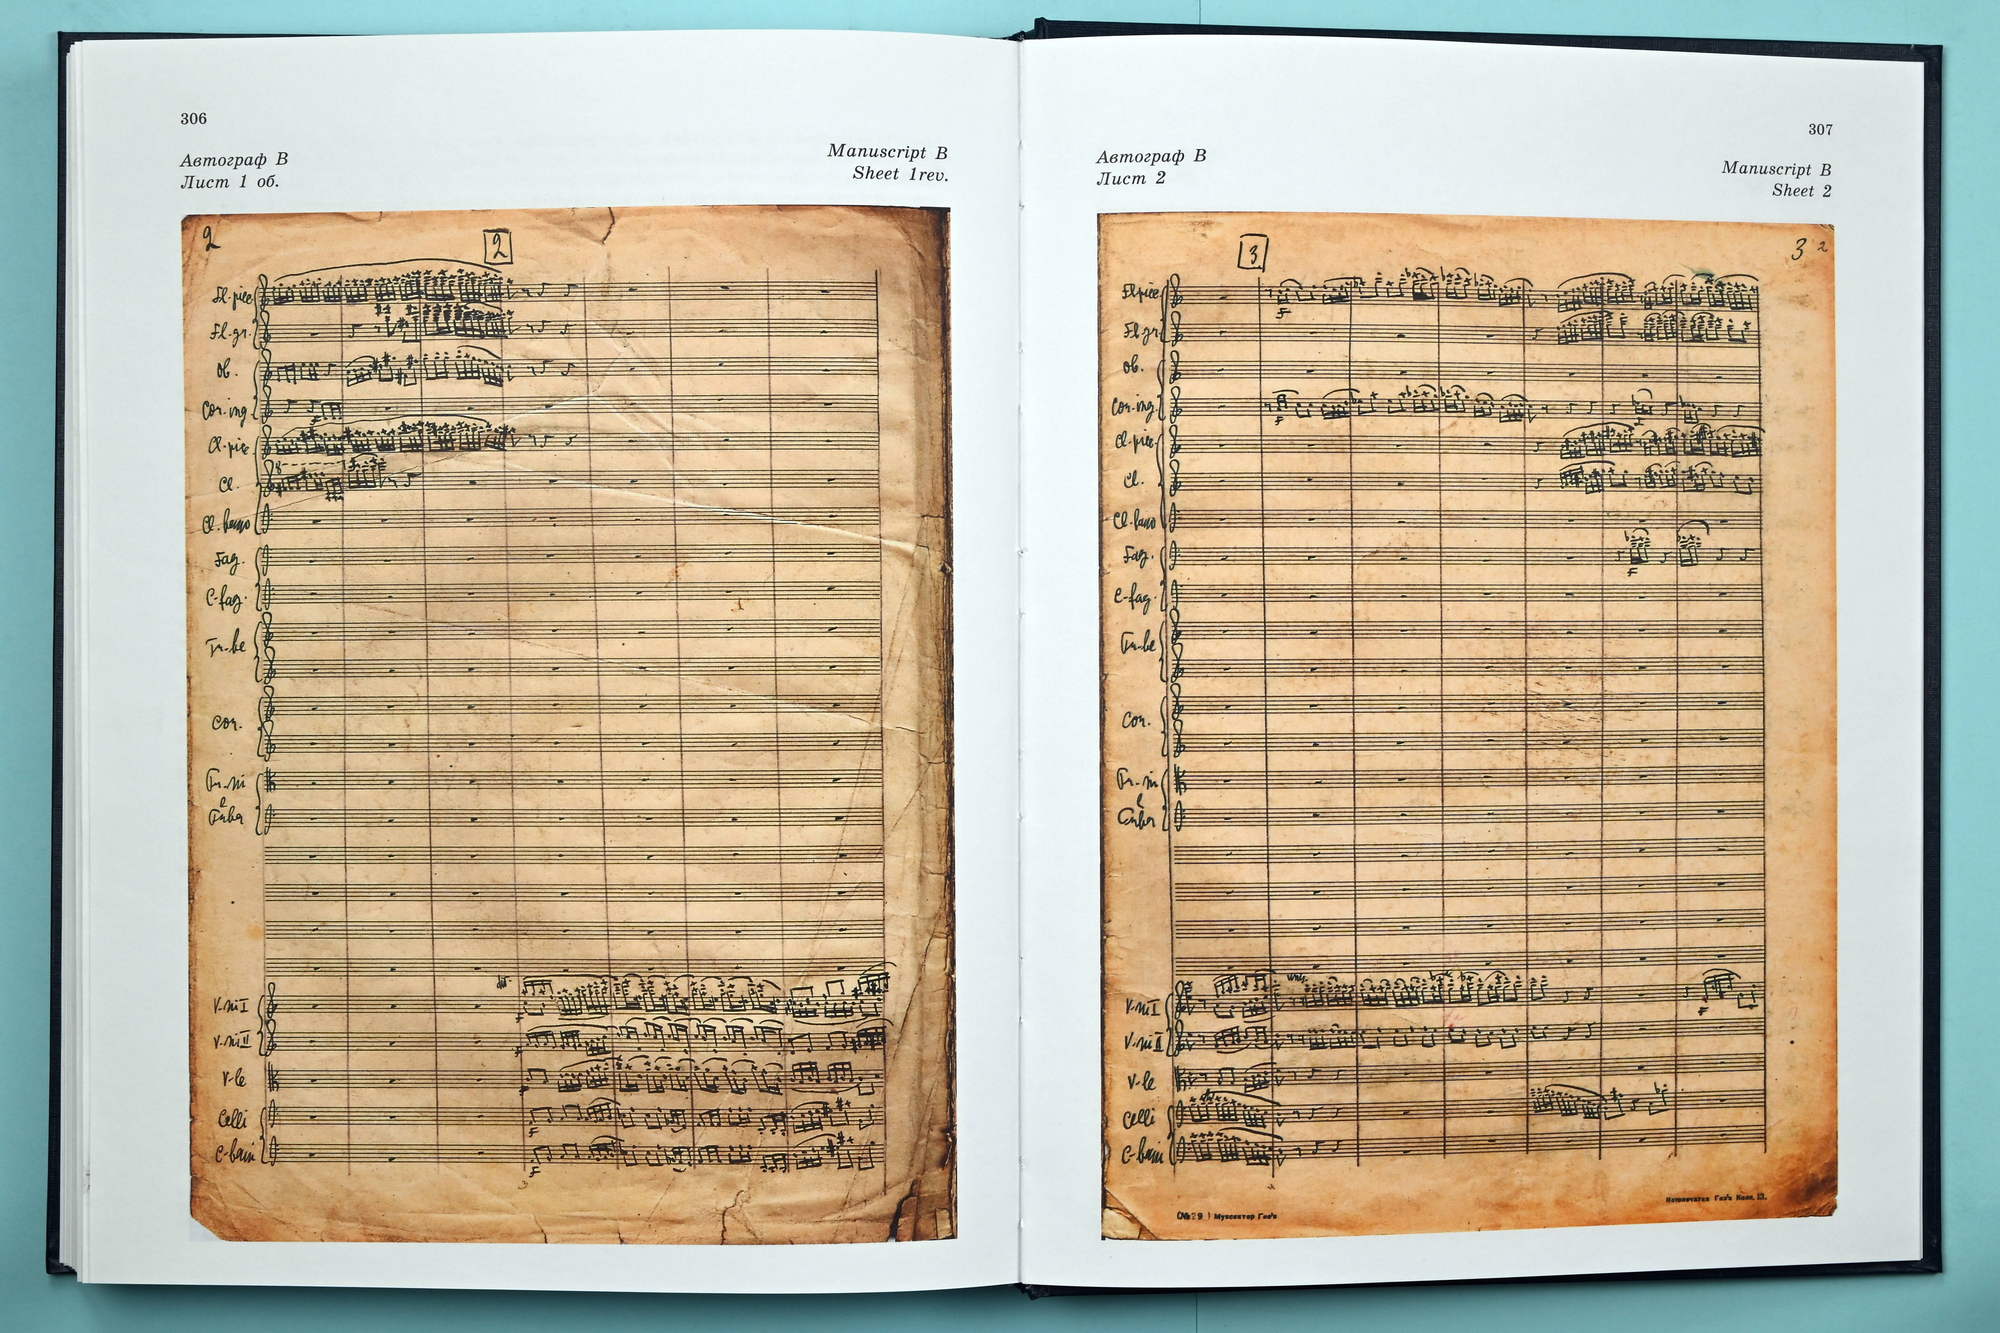 306
Автограф В
Лист 1 об.
Manuscript B
Sheet 1rev.
2
2
Fl-picc
Fl.gr.
Ob.
Cor.ing.
Cl-picc
Cl.
Cl.basso
Fag.
C-fag.
Tr-be
Cor.
Tr-ni
e
Tuba
V-ni I
V-ni II
V-le
Celli
C-bassi
307
Автограф В
Лист 2
Manuscript B
Sheet 2
3
3
2
Fl-picc
Fl.gr.
Ob.
Cor.ing.
Cl-picc
Cl.
Cl.basso
Fag.
C-fag.
Tr-be
Cor.
Tr-ni
e
Tuba
V-ni I
V-ni II
V-le
Celli
C-bassi
Музсектор Гиз'а